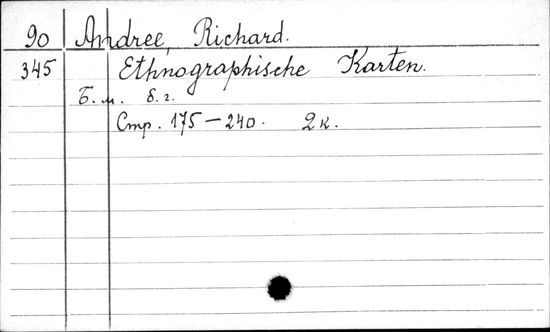 90 Andree, Richard.
345 Ethnographische Karten.
Б. м. б. г.
Стр. 175 — 240. 2 к.